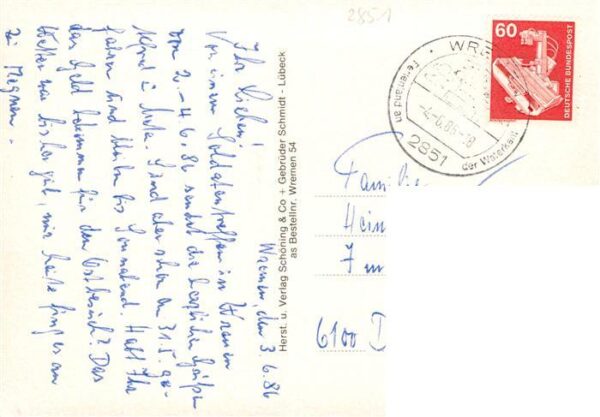 2851
Wremen, den 3.6.86
Ihr Lieben!
Von einem Soldatentreffen in Wremen
vom 2.-4.6.86 sendet die herzlichen Grüße
Alfred u. Meta. Sind aber schon am 31.5. ge-
fahren und bleiben bis Sonnabend. Habt Ihr
das Geld bekommen für den Ostbesuch? Das
Wetter war bisher gut, nur heute fing es an
zu regnen.
Herst. u. Verlag Schöning & Co + Gebrüder Schmidt - Lübeck
as Bestellnr. Wremen 54
60
DEUTSCHE BUNDESPOST
WRE
Ferienland an der Waterkant
-4.6.86-18
2851
Familie
Hein
6100 D